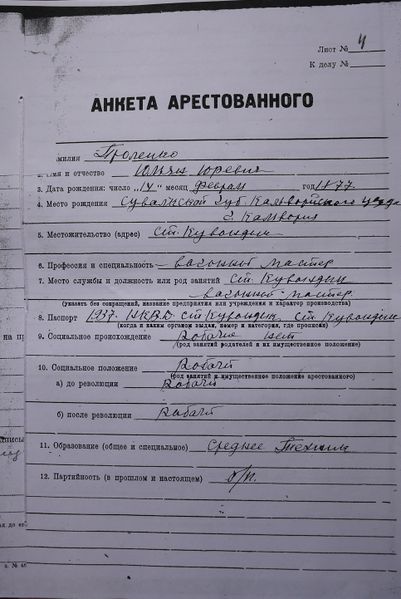 Лист № 4
К делу №
АНКЕТА АРЕСТОВАННОГО
амилия Проленко
Имя и отчество Юльян Юревич
3. Дата рождения: число "14" месяц феврал год 1877
4. Место рождения Сувальской губ Калворийского уезда
г. Калвория
5. Местожительство (адрес) Ст. Кувандык
6. Профессия и специальность вагонный мастер
7. Место службы и должность или род занятий Ст. Кувандык
вагонный мастер
(указать без сокращений, название предприятия или учреждения и характер производства)
8. Паспорт 1937 НКВД ст Кувандык Ст. Кувандык
(когда и каким органом выдан, номер и категория, где прописан)
9. Социальное происхождение Рабочие нет
(род занятий родителей и их имущественное положение)
10. Социальное положение Рабочий
(род занятий и имущественное положение арестованного)
а) до революции Рабочий
б) после революции Рабочий
11. Образование (общее и специальное) Среднее
12. Партийность (в прошлом и настоящем) б/п.